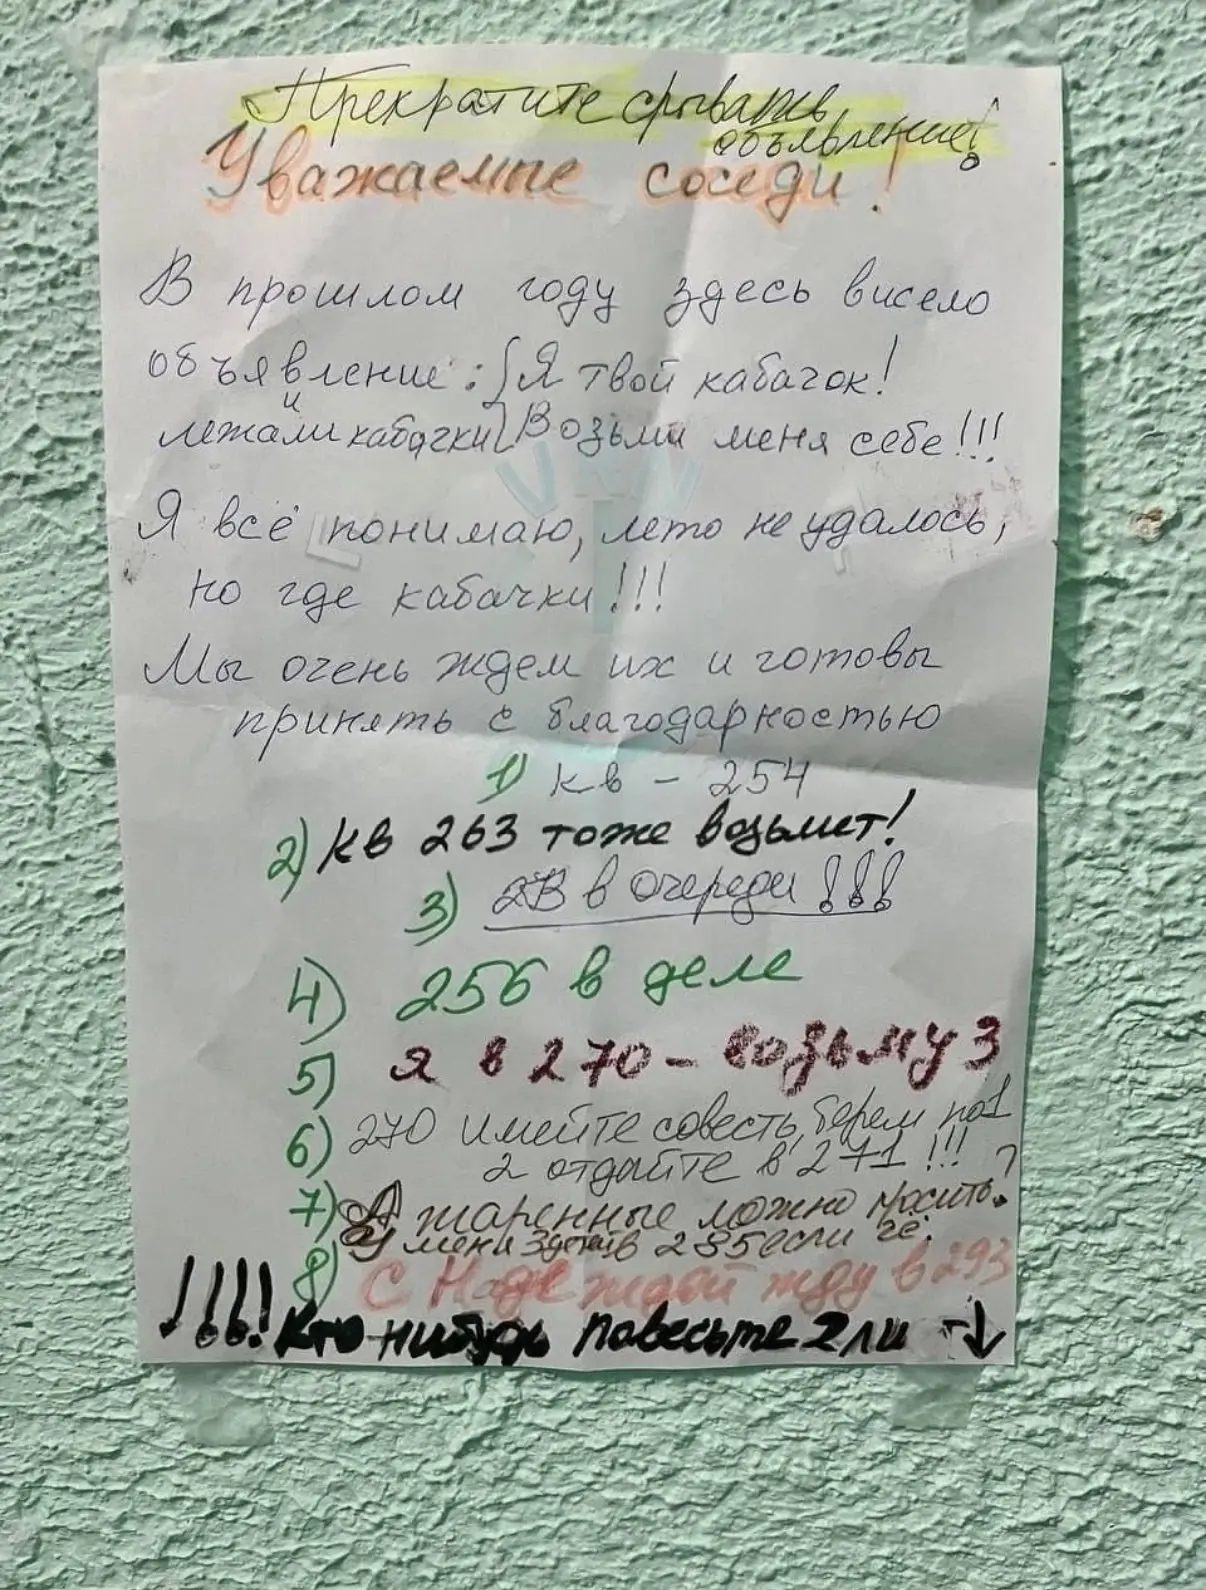 Прекратите срывать
объявление!
Уважаемые соседи!
В прошлом году здесь висело
объявление: Я твой кабачок!
и
лежали кабачки Возьми меня себе!!!
Я всё понимаю, лето не удалось,
но где кабачки!!!
Мы очень ждем их и готовы
принять с благодарностью
1) кв - 254
2) кв 263 тоже возьмет!
3) в очереди!!!
4) 256 в деле
5) я в 270 - возьму 3
6) 270 имейте совесть, берем по 1
2 отдайте в 271!!!
7) А жаренные можно просить?
У меня в 285 если чё.
8) С Надеждой жду в 293
!!!! Кто нибудь повесьте 2 ли →↓